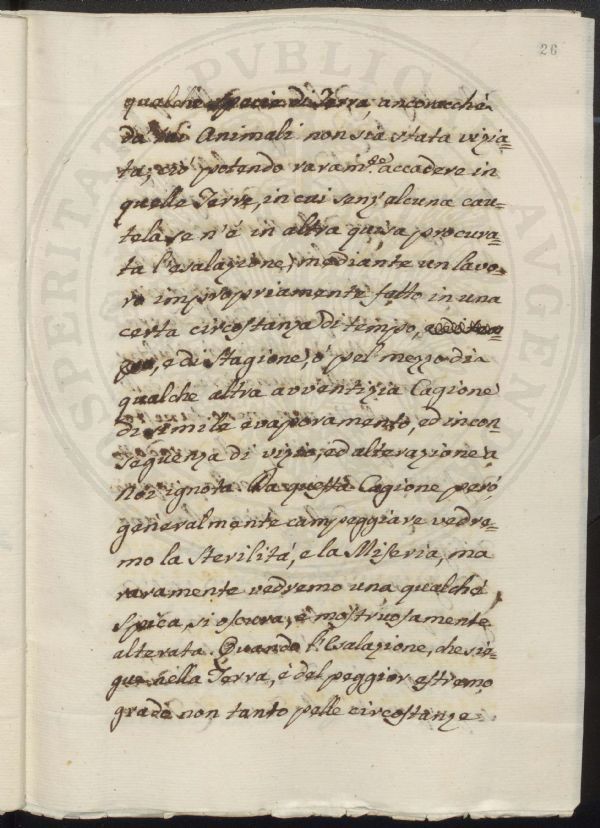 26
qualche specie di Terra, ancorchè
da tai Animali non sia stata vizia=
ta; ciò potendo raram.te accadere in
quelle Terre, in cui senz'alcuna cau=
tela se n'è in altra guisa procura=
ta l'esalazione, mediante un lavo=
ro impropriamente fatto in una
certa circostanza di tempo,
e di stagione, ò pel mezzo di
qualche altra avventizia Cagione
di simile evaporamento, ed in con=
seguenza di vizio, ed alterazione a
noi ignota. Da questa Cagione però,
generalmente campeggiare vedre=
mo la Sterilità, e la Miseria, ma
raramente vedremo una qualche
Spica, sì oscura, e mostruosamente
alterata. Quando l'Esalazione, che sie=
gue nella Terra, è del peggior estremo
grado non tanto pelle circostanze
PVBLICAE
AVGENDAE